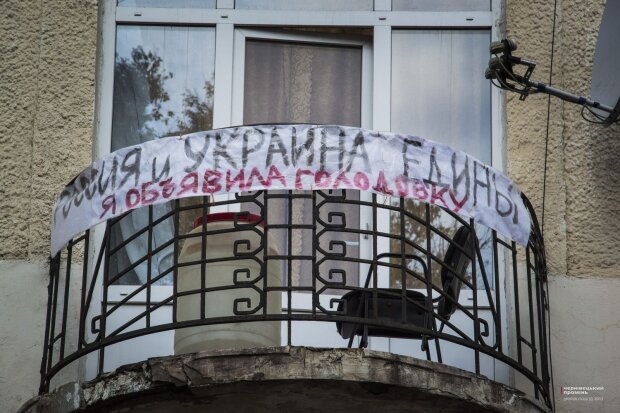 РОССИЯ И УКРАИНА ЕДИНЫ
Я ОБЪЯВИЛА ГОЛОДОВКУ
ЧЕРНІВЕЦЬКИЙ
ПРОМІНЬ